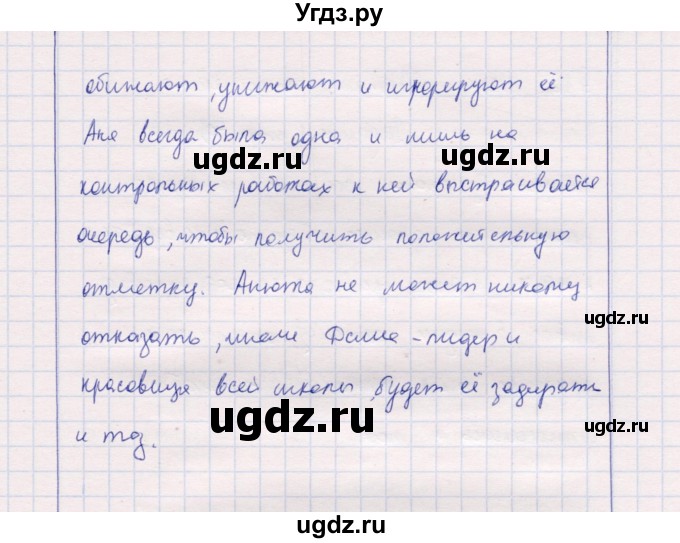 Угдз.ру
обижают, унижают и игнорируют её.
Аня всегда была одна и лишь на
ugdz.ru
ugdz.ru
контрольных работах к ней выстраивается
очередь, чтобы получить положительную
отметку. Анюта не может никому
ugdz.ru
отказать, иначе - лидер и
красавица всей школы, будет её задирать
ugdz.ru
ugdz.ru
и тд.
ugdz.ru